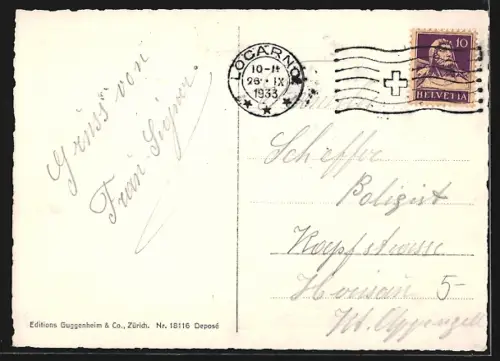 Gruss von
Frau Signer.
LOCARNO
10-11
26. IX
1933
10
HELVETIA
Scheffer
Polizist
Kopfstrasse
Herisau 5-
Kt. Appenzell
Editions Guggenheim & Co., Zürich. Nr. 18116 Deposé